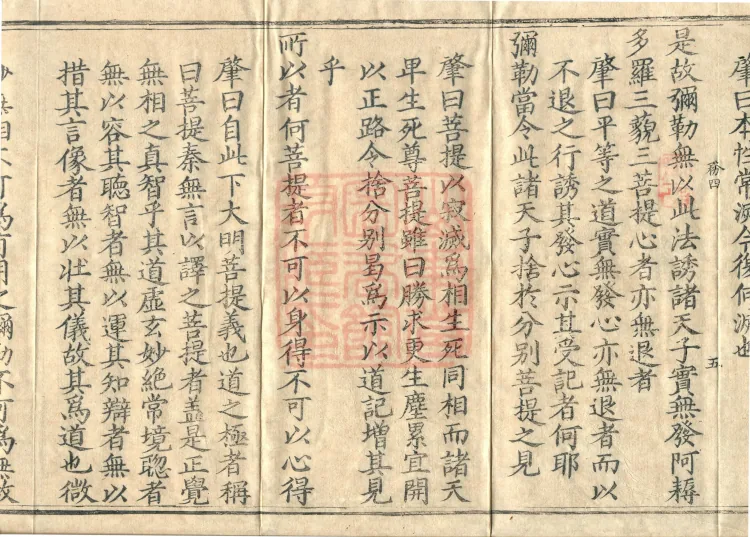 肇曰本性常滅今復何滅也
是故彌勒無以此法誘諸天子實無發阿耨
務四 五
多羅三藐三菩提心者亦無退者
肇曰平等之道實無發心亦無退者而以
不退之行誘其發心示其受記者何耶
彌勒當令此諸天子捨於分别菩提之見
肇曰菩提以寂滅爲相生死同相而諸天
卑生死尊菩提雖曰勝求更生塵累宜開
以正路令捨分别曷爲示以道記增其見
乎
所以者何菩提者不可以身得不可以心得
肇曰自此下大明菩提義也道之極者稱
曰菩提秦無言以譯之菩提者盖是正覺
無相之真智乎其道虛玄妙絶常境聦者
無以容其聽智者無以運其知辯者無以
措其言像者無以壯其儀故其爲道也微
妙無相不可爲有用之彌勤不可爲無故